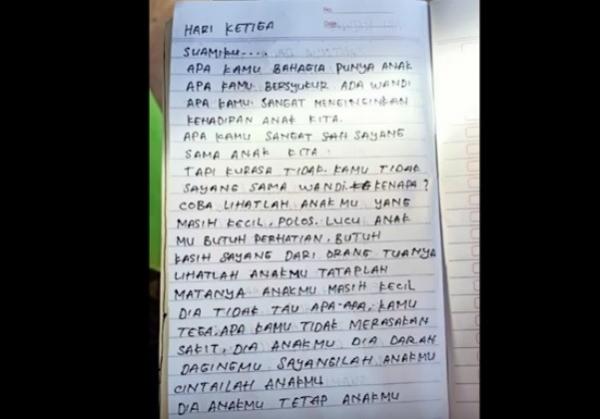 No.
Date
HARI KETIGA
SUAMIKU....
APA KAMU BAHAGIA PUNYA ANAK
APA KAMU BERSYUKUR ADA WANDI
APA KAMU SANGAT MENGINGINKAN
KEHADIRAN ANAK KITA.
APA KAMU SANGAT SAYANG
SAMA ANAK KITA.
TAPI KURASA TIDAK. KAMU TIDAK
SAYANG SAMA WANDI. KENAPA?
COBA LIHATLAH ANAKMU YANG
MASIH KECIL, POLOS. LUCU ANAK
MU BUTUH PERHATIAN, BUTUH
KASIH SAYANG DARI ORANG TUANYA
LIHATLAH ANAKMU TATAPLAH
MATANYA ANAKMU MASIH KECIL
DIA TIDAK TAU APA-APA, KAMU
TEGA. APA KAMU TIDAK MERASAKAN
SAKIT, DIA ANAKMU DIA DARAH
DAGINGMU SAYANGILAH ANAKMU
CINTAILAH ANAKMU
DIA ANAKMU TETAP ANAKMU